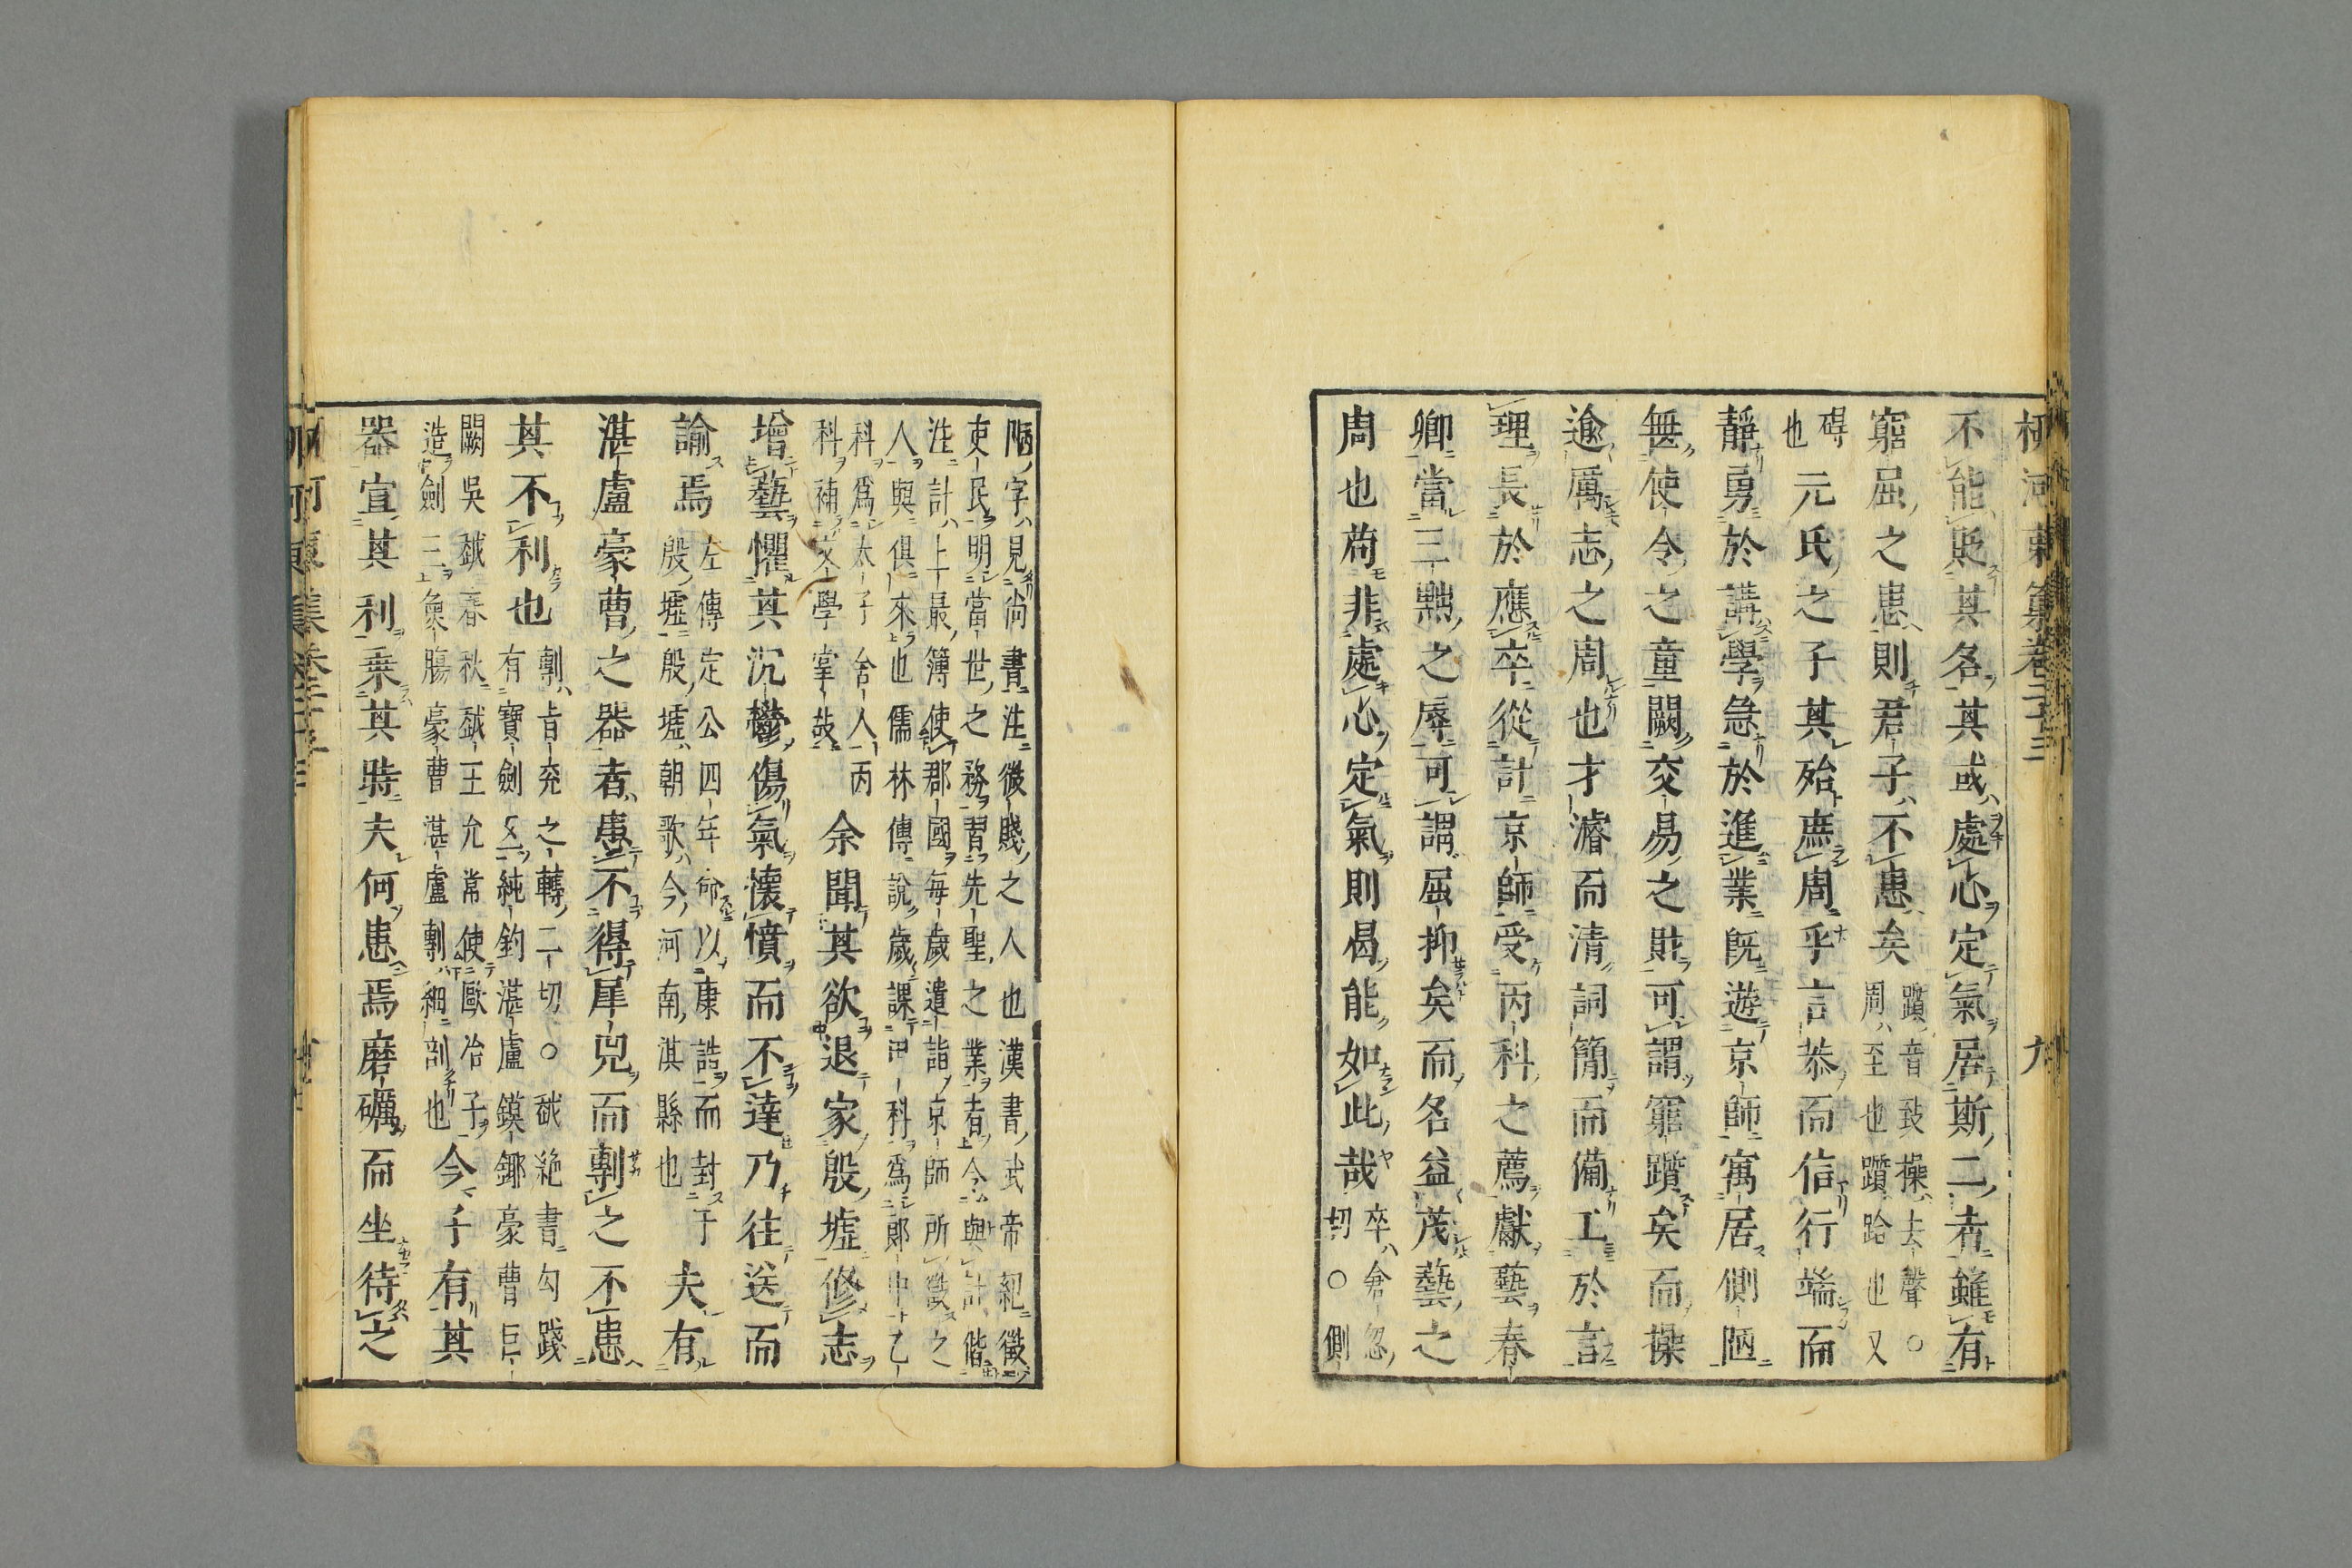 不能貶其名其或處心定氣居斯二者雖有
窮屈之患則君子不患矣躓音致操去聲○
周至也躓跲也又
碍
也元氏之子其殆庶周乎言恭而信行端而
靜勇於講學急於進業既遊京師寓居側陋
無使令之童闕交易之財可謂窮躓矣而操
逾厲志之周也才濬而清詞簡而備工於言
理長於應卒從計京師受丙科之薦獻藝春
卿當三黜之辱可謂屈抑矣而名益茂藝之
周也苟非處心定氣則曷能如此哉卒倉忽
切○側
陋字見尚書注微賤之人也漢書武帝紀徵
吏民明當世之務習先聖之業者今與計偕
注計上最簿使郡國每歲遣詣京師所徵之
人與俱來也儒林傳說歲課甲科爲郎中乙
科爲太子舍人丙
科補文學掌故余聞其欲退家殷墟修志
增藝懼其沉鬱傷氣懷憤而不達乃往送而
諭焉左傳定公四年命以康誥而封于
殷墟殷墟朝歌今河南淇縣也夫有
湛盧豪曹之器者患不得犀兕而剸之不患
其不利也剸旨兖之轉二切○越絶書勾踐
有寶劍五純鈞湛盧鏌鎁豪曹巨
闕吳越春秋越王允常使歐冶子
造劍三魚腸豪曹湛盧剸細剖也今子有其
器宜其利乗其時夫何患焉磨礪而坐待之